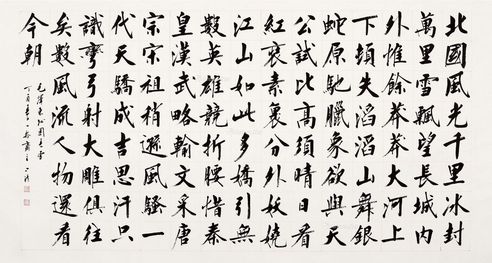 北國風光千里冰封
萬里雪飄望長城內
外惟餘莽莽大河上
下頓失滔滔山舞銀
蛇原馳臘象欲與天
公試比高須晴日看
紅裝素裹分外妖嬈
江山如此多嬌引無
數英雄競折腰惜秦
皇漢武略輸文采唐
宗宋祖稍遜風騷一
代天驕成吉思汗只
識彎弓射大雕俱往
矣數風流人物還看
今朝
毛澤東沁園春雪
丁酉